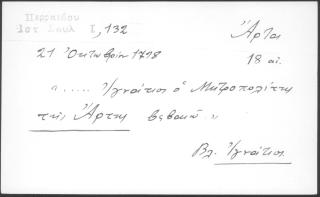 Περραιβού
Ιστ Σουλ Ι, 132
Άρτα
21 Οκτωβρίου 1798
18 αι.
« ..... Ιγνάτιος ο Μητροπολίτης
της Άρτης βεβαιώ »
Βλ. Ιγνάτιος